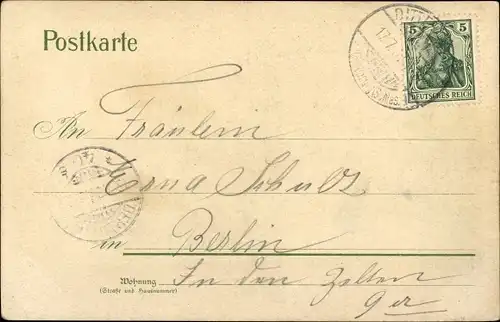 Postkarte
5 5
DEUTSCHES REICH
An Fräulein
Erna Schulz
in Berlin
Wohnung
(Straße und Hausnummer)
In den Zelten
9